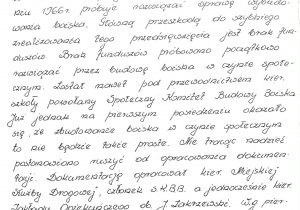 niu 1966r. próbuje rozwiązać sprawę wybudo-
wania boiska. Główną przeszkodą do szybkiego
zrealizowania tego przedsięwzięcia jest brak fun-
duszów. Brak funduszów próbowano początkowo
rozwiązać przez budowę boiska w czynie społe-
cznym. Został nawet pod przewodnictwem kier.
szkoły powołany Społeczny Komitet Budowy Boiska
Już jednak na pierwszym posiedzeniu okazało
się, że zbudowanie boiska w czynie społecznym
to nie będzie takie proste. Nie tracąc nadziei
postanowiono ruszyć od opracowania dokumen-
tacji. Dokumentację opracował kier. Miejskiej
Służby Drogowej, członek S.K.B.B. a jednocześnie kier.
Zakładu Opiekuńczego ob. J. Zakrzewski. Wg pier-